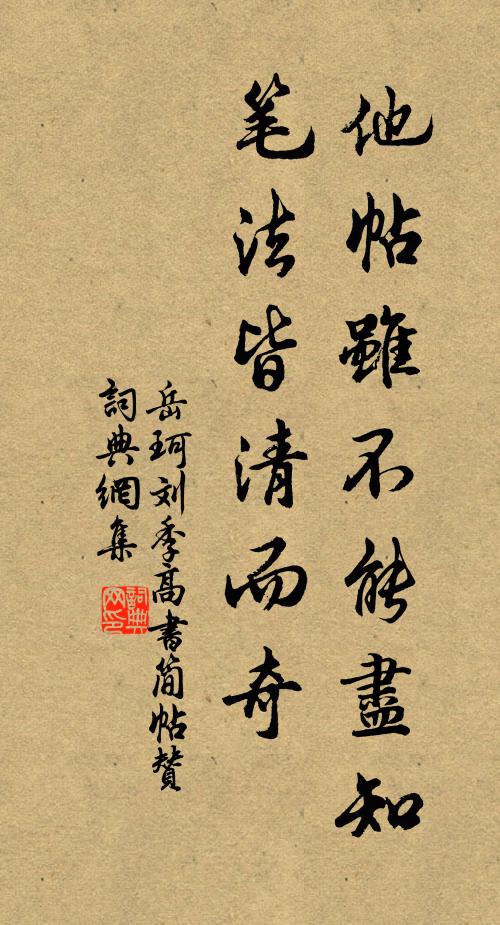 他帖雖不能盡知
笔法皆清而奇
岳珂刘季高書简帖贊
詞典網集
詞典
网印